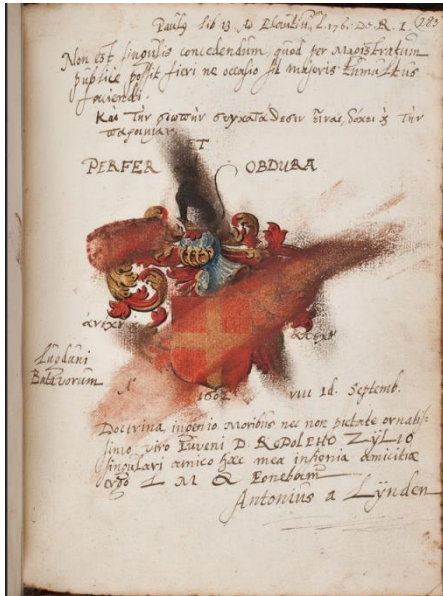 Paulus lib 13 ad Plautium l. 176. De R. I.
283
Non est singulis concedendum, quod per Magistratum
publice possit fieri ne occasio sit majoris tumultus
faciendi.
Και την σιωπην συγκαταθεσιν ειναι, δοκει την
παροιμιαν
ET
PERFER OBDURA
ανεχε απεχε
Lugduni
Batavorum
A° 1602 VIII Id. Septemb.
Doctrina ingenio moribus nec non pietate ornatis-
simo viro Iuveni D. RODOLPHO ZYLIO
singulari amico hæc mea insignia amicitiæ
ergo L M Q Ponebam
Antonius a Lÿnden